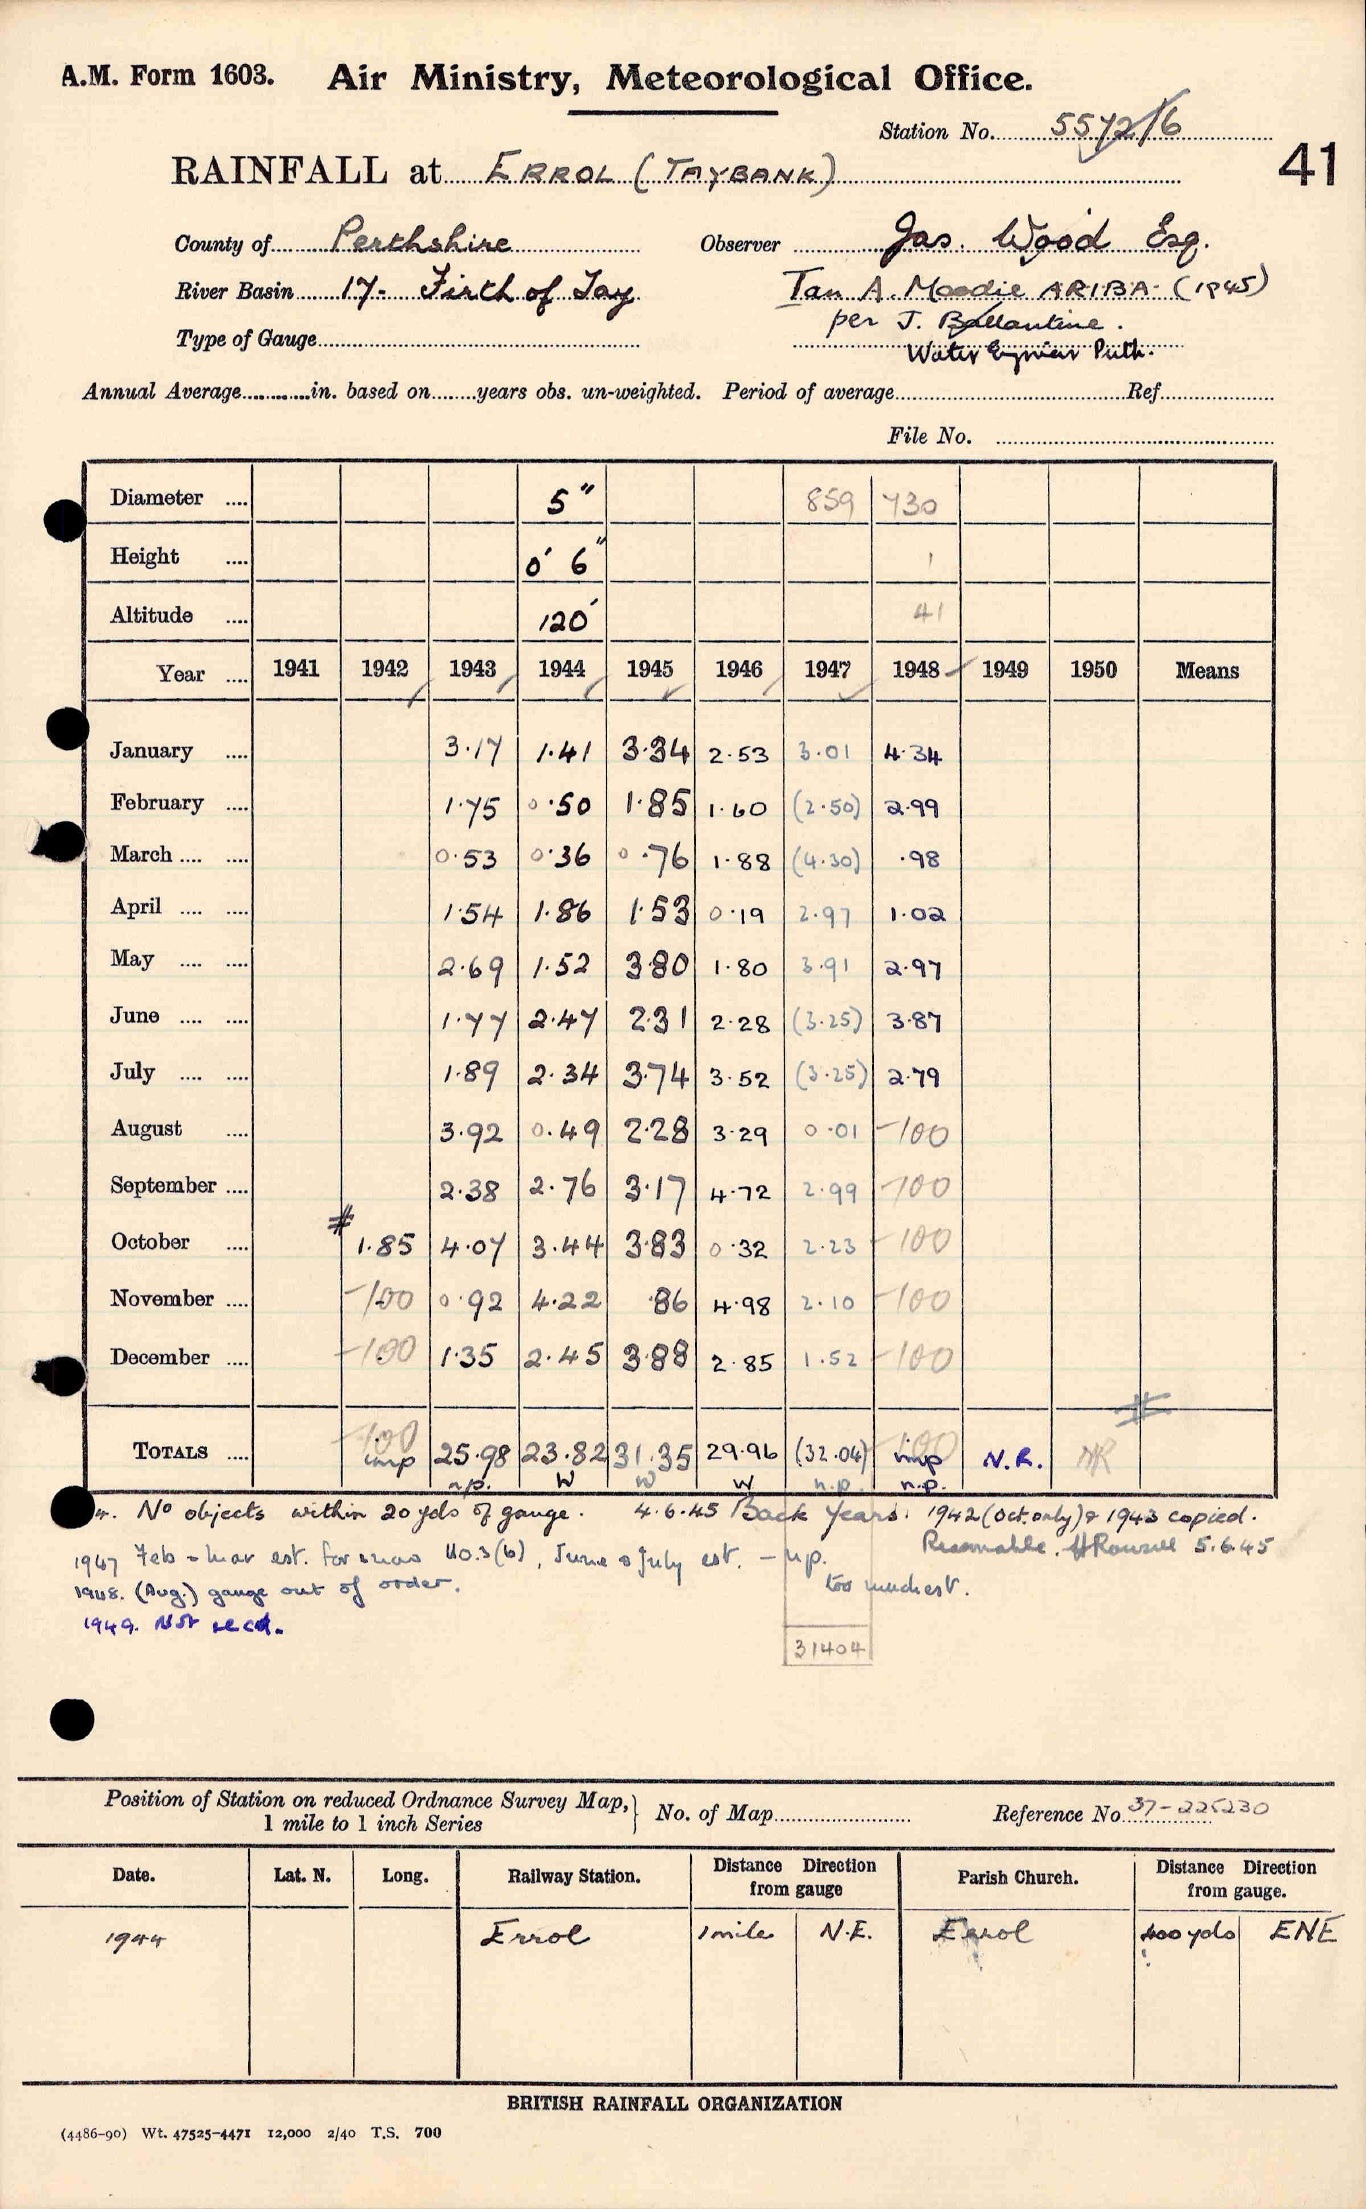 A.M. Form 1603. Air Ministry, Meteorological Office.
Station No. 5572/6
41
RAINFALL at ERROL (TAYBANK)
County of Perthshire Observer Jas. Wood Esq.
River Basin 17- Firth of Tay Ian A. Moodie ARIBA (1945)
per J. Ballantine.
Type of Gauge
Water Engineer Perth.
Annual Average in. based on years obs. un-weighted. Period of average Ref
File No.
Diameter .... 5" 859 730
Height .... 0' 6" 1
Altitude .... 120' 41
Year .... 1941 1942 1943 1944 1945 1946 1947 1948 1949 1950 Means
January .... 3.17 1.41 3.34 2.53 3.01 4.34
February .... 1.75 0.50 1.85 1.60 (2.50) 2.99
March .... .... 0.53 0.36 0.76 1.88 (4.30) .98
April .... .... 1.54 1.86 1.53 0.19 2.97 1.02
May .... .... 2.69 1.52 3.80 1.80 3.91 2.97
June .... .... 1.77 2.47 2.31 2.28 (3.25) 3.87
July .... .... 1.89 2.34 3.74 3.52 (3.25) 2.79
August .... 3.92 0.49 2.28 3.29 0.01 -100
September .... 2.38 2.76 3.17 4.72 2.99 -100
October .... # 1.85 4.07 3.44 3.83 0.32 2.23 -100
November .... -100 0.92 4.22 .86 4.98 2.10 -100
December .... -100 1.35 2.45 3.88 2.85 1.52 -100
#
TOTALS .... -100 imp 25.98 23.82 31.35 29.96 (32.04) -100 imp N.R. NR
n.p. W W W n.p. n.p.
No objects within 20 yds of gauge. 4.6.45 Back Years: 1942 (Oct. only) & 1943 copied.
Reasonable. 5.6.45
1947 Feb & Mar est. for snow No.3(b), June & July est. - n.p.
too much est.
1948. (Aug.) gauge out of order.
1949. Not recd.
31404
Position of Station on reduced Ordnance Survey Map, 1 mile to 1 inch Series } No. of Map Reference No 37-225230
Date. Lat. N. Long. Railway Station. Distance Direction from gauge Parish Church. Distance Direction from gauge.
1944 Errol 1 mile N.E. Errol 400 yds ENE
BRITISH RAINFALL ORGANIZATION
(4486-90) Wt. 47525-4471 12,000 2/40 T.S. 700